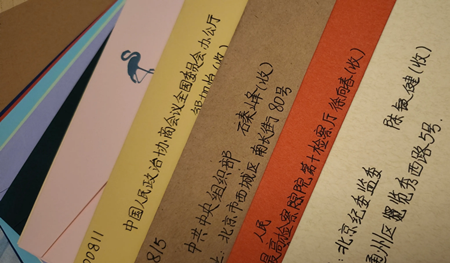 中国人民政治协商会议全国委员会办公厅
(收)
00811
中共中央组织部
北京市西城区 南长街 80号
石泰峰(收)
815
人民
最高检察院第十检察厅 徐向春(收)
北京纪委监委
通州区 觅秀西路5号.
陈健(收)